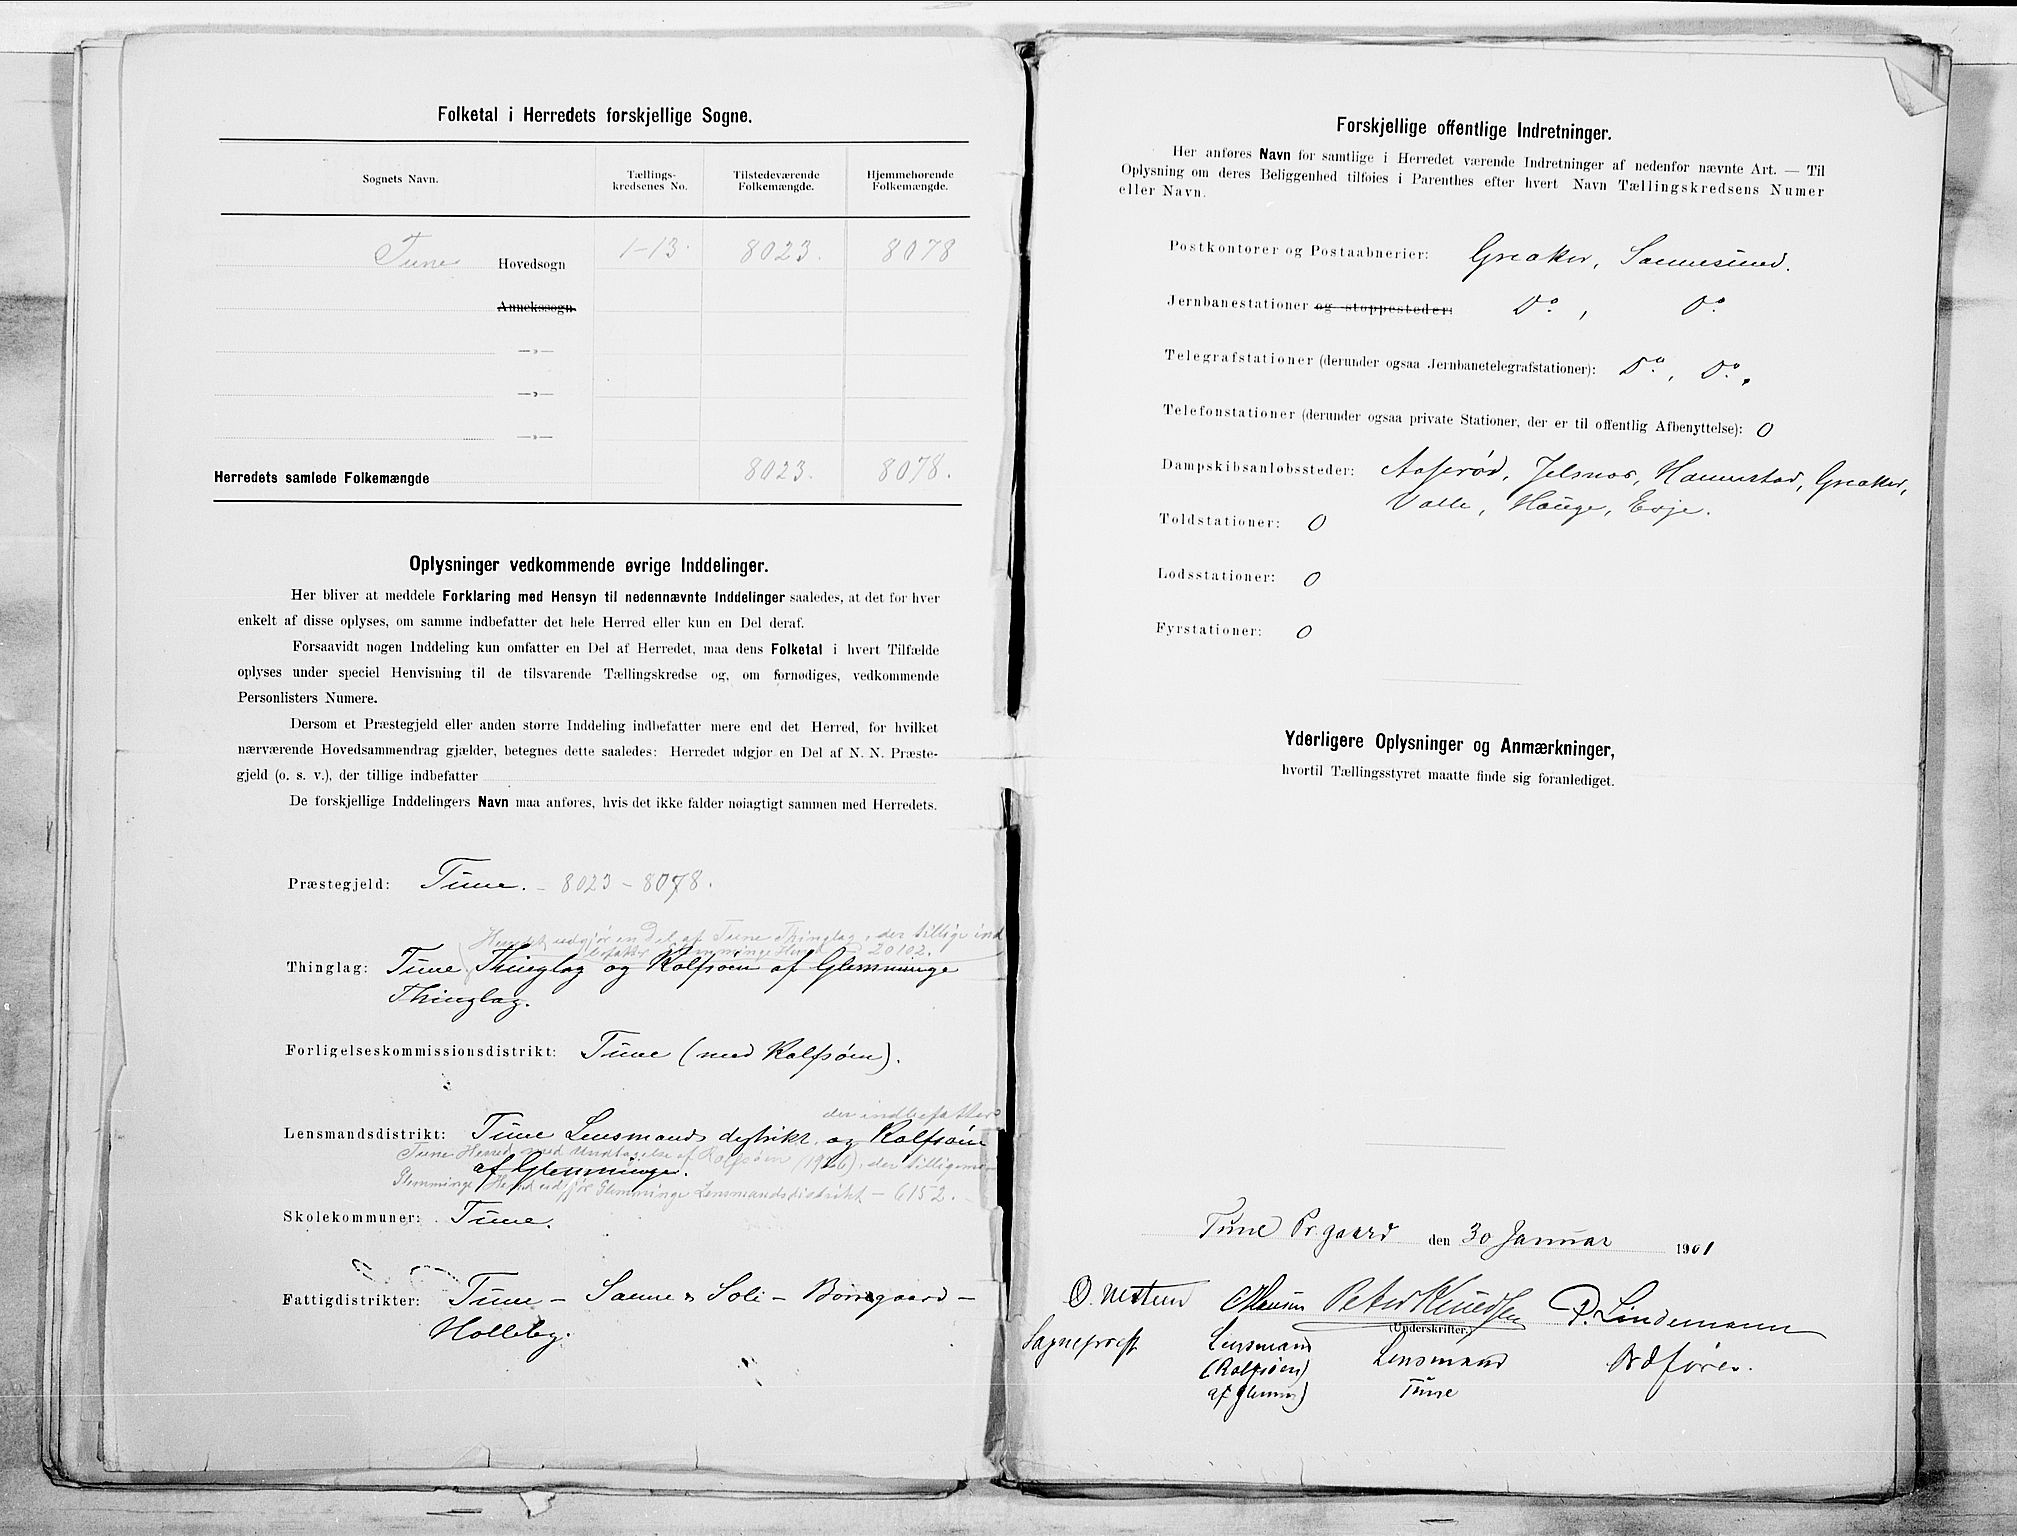 Folketal i Herredets forskjellige Sogne.
Sognets Navn.
Tællings-
kredsenes No.
Tilstedeværende
Folkemængde.
Hjemmehørende
Folkemængde.
Tune Hovedsogn 1-13. 8023. 8078
Annekssogn.
—„—
—„—
—„—
Herredets samlede Folkemængde 8023. 8078.
Oplysninger vedkommende øvrige Inddelinger.
Her bliver at meddele Forklaring med Hensyn til nedennævnte Inddelinger saaledes, at det for hver
enkelt af disse oplyses, om samme indbefatter det hele Herred eller kun en Del deraf.
Forsaavidt nogen Inddeling kun omfatter en Del af Herredet, maa dens Folketal i hvert Tilfælde
oplyses under speciel Henvisning til de tilsvarende Tællingskredse og, om fornødiges, vedkommende
Personlisters Numere.
Dersom et Præstegjeld eller anden større Inddeling indbefatter mere end det Herred, for hvilket
nærværende Hovedsammendrag gjælder, betegnes dette saaledes: Herredet udgjør en Del af N. N. Præste-
gjeld (o. s. v.), der tillige indbefatter
De forskjellige Inddelingers Navn maa anføres, hvis det ikke falder nøiagtigt sammen med Herredets.
Præstegjeld: Tune. – 8023 – 8078.
Herredet udgjør en Del af Tune Thinglag, der tillige ind
befatter Glemminge Herred 20102.
Thinglag: Tune Thinglag og Rolfsøen af Glemminge
Thinglag.
Forligelseskommissionsdistrikt: Tune (med Rolfsøen).
der indbefatter
Lensmandsdistrikt: Tune Lensmands distrikt og Rolfsøen
Tune Herred med Undtagelse af Rolfsøen (1926), der tillige
af Glemminge.
Glemminge Herred udgjør Glemminge Lensmandsdistrikt – 6152.
Skolekommuner: Tune.
Fattigdistrikter: Tune – Sanne & Soli – Borregaard –
Holleby.
Forskjellige offentlige Indretninger.
Her anføres Navn for samtlige i Herredet værende Indretninger af nedenfor nævnte Art. — Til
Oplysning om deres Beliggenhed tilføies i Parenthes efter hvert Navn Tællingskredsens Numer
eller Navn.
Postkontorer og Postaabnerier: Greaker, Sannesund.
Jernbanestationer og -stoppesteder: Do, Do
Telegrafstationer (derunder ogsaa Jernbanetelegrafstationer): Do, Do.
Telefonstationer (derunder ogsaa private Stationer, der er til offentlig Afbenyttelse): 0
Dampskibsanløbssteder: Aaserød, Jelsnes, Hannestad, Greaker,
Valle, Hauge, Evje.
Toldstationer: 0
Lodsstationer: 0
Fyrstationer: 0
Yderligere Oplysninger og Anmærkninger,
hvortil Tællingsstyret maatte finde sig foranlediget.
Tune Pr.gaard den 30 Januar 1901
O. Nestun CHansen Peter Knudsen P. Lindemann
(Underskrifter.)
Sogneprest Lensmand Lensmand Ordfører.
(Rolfsøen Tune
af Glemm.)